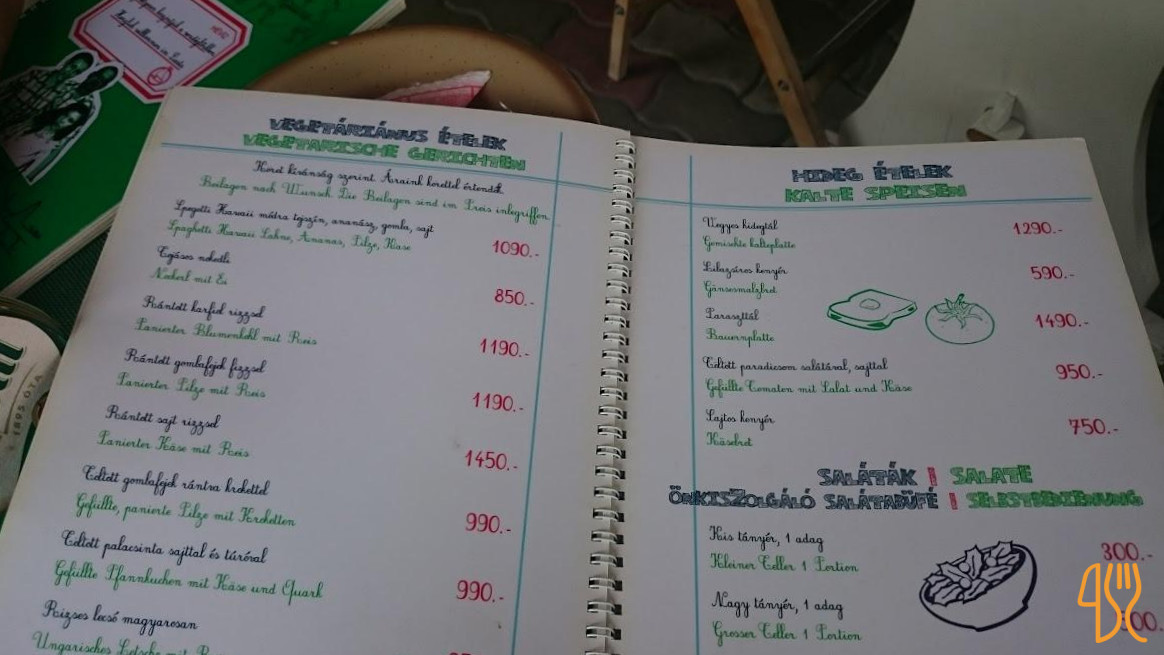 VEGETÁRIÁNUS ÉTELEK
VEGETARISCHE GERICHTEN
Köret kívánság szerint. Áraink körettel értendő
Beilagen nach Wunsch. Die Beilagen sind im Preis inbegriffen
Spagetti Hawaii módra tejszín, ananász, gomba, sajt
Spaghetti Hawaii Sahne, Ananas, Pilze, Käse
1090.-
Tojásos nokedli
Nockerl mit Ei
850.-
Rántott karfiol rizzsel
Panierter Blumenkohl mit Reis
1190.-
Rántott gombafejek rizzsel
Panierter Pilze mit Reis
1190.-
Rántott sajt rizzsel
Panierter Käse mit Reis
1450.-
Töltött gombafejek rántva krokettel
Gefüllte, panierte Pilze mit Kroketten
990.-
Töltött palacsinta sajttal és túróval
Gefüllte Pfannkuchen mit Käse und Quark
990.-
Rizses lecsó magyarosan
Ungarisches Letscho mit
HIDEG ÉTELEK
KALTE SPEISEN
Vegyes hidegtál
Gemischte kalteplatte
1290.-
Lilazsíros kenyér
Gänsesmalzbrot
590.-
Paraszttál
Bauernplatte
1490.-
Töltött paradicsom salátával, sajttal
Gefüllte Tomaten mit Salat und Käse
950.-
Sajtos kenyér
Käsebrot
750.-
SALÁTÁK | SALATE
ÖNKISZOLGÁLÓ SALÁTABÜFÉ | SELBSTBEDIENUNG
Kis tányér, 1 adag
Kleiner Teller 1 Portion
300.-
Nagy tányér, 1 adag
Grosser Teller 1 Portion